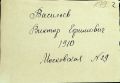 Васильев
Виктор Ефимович
1910
Московская №19